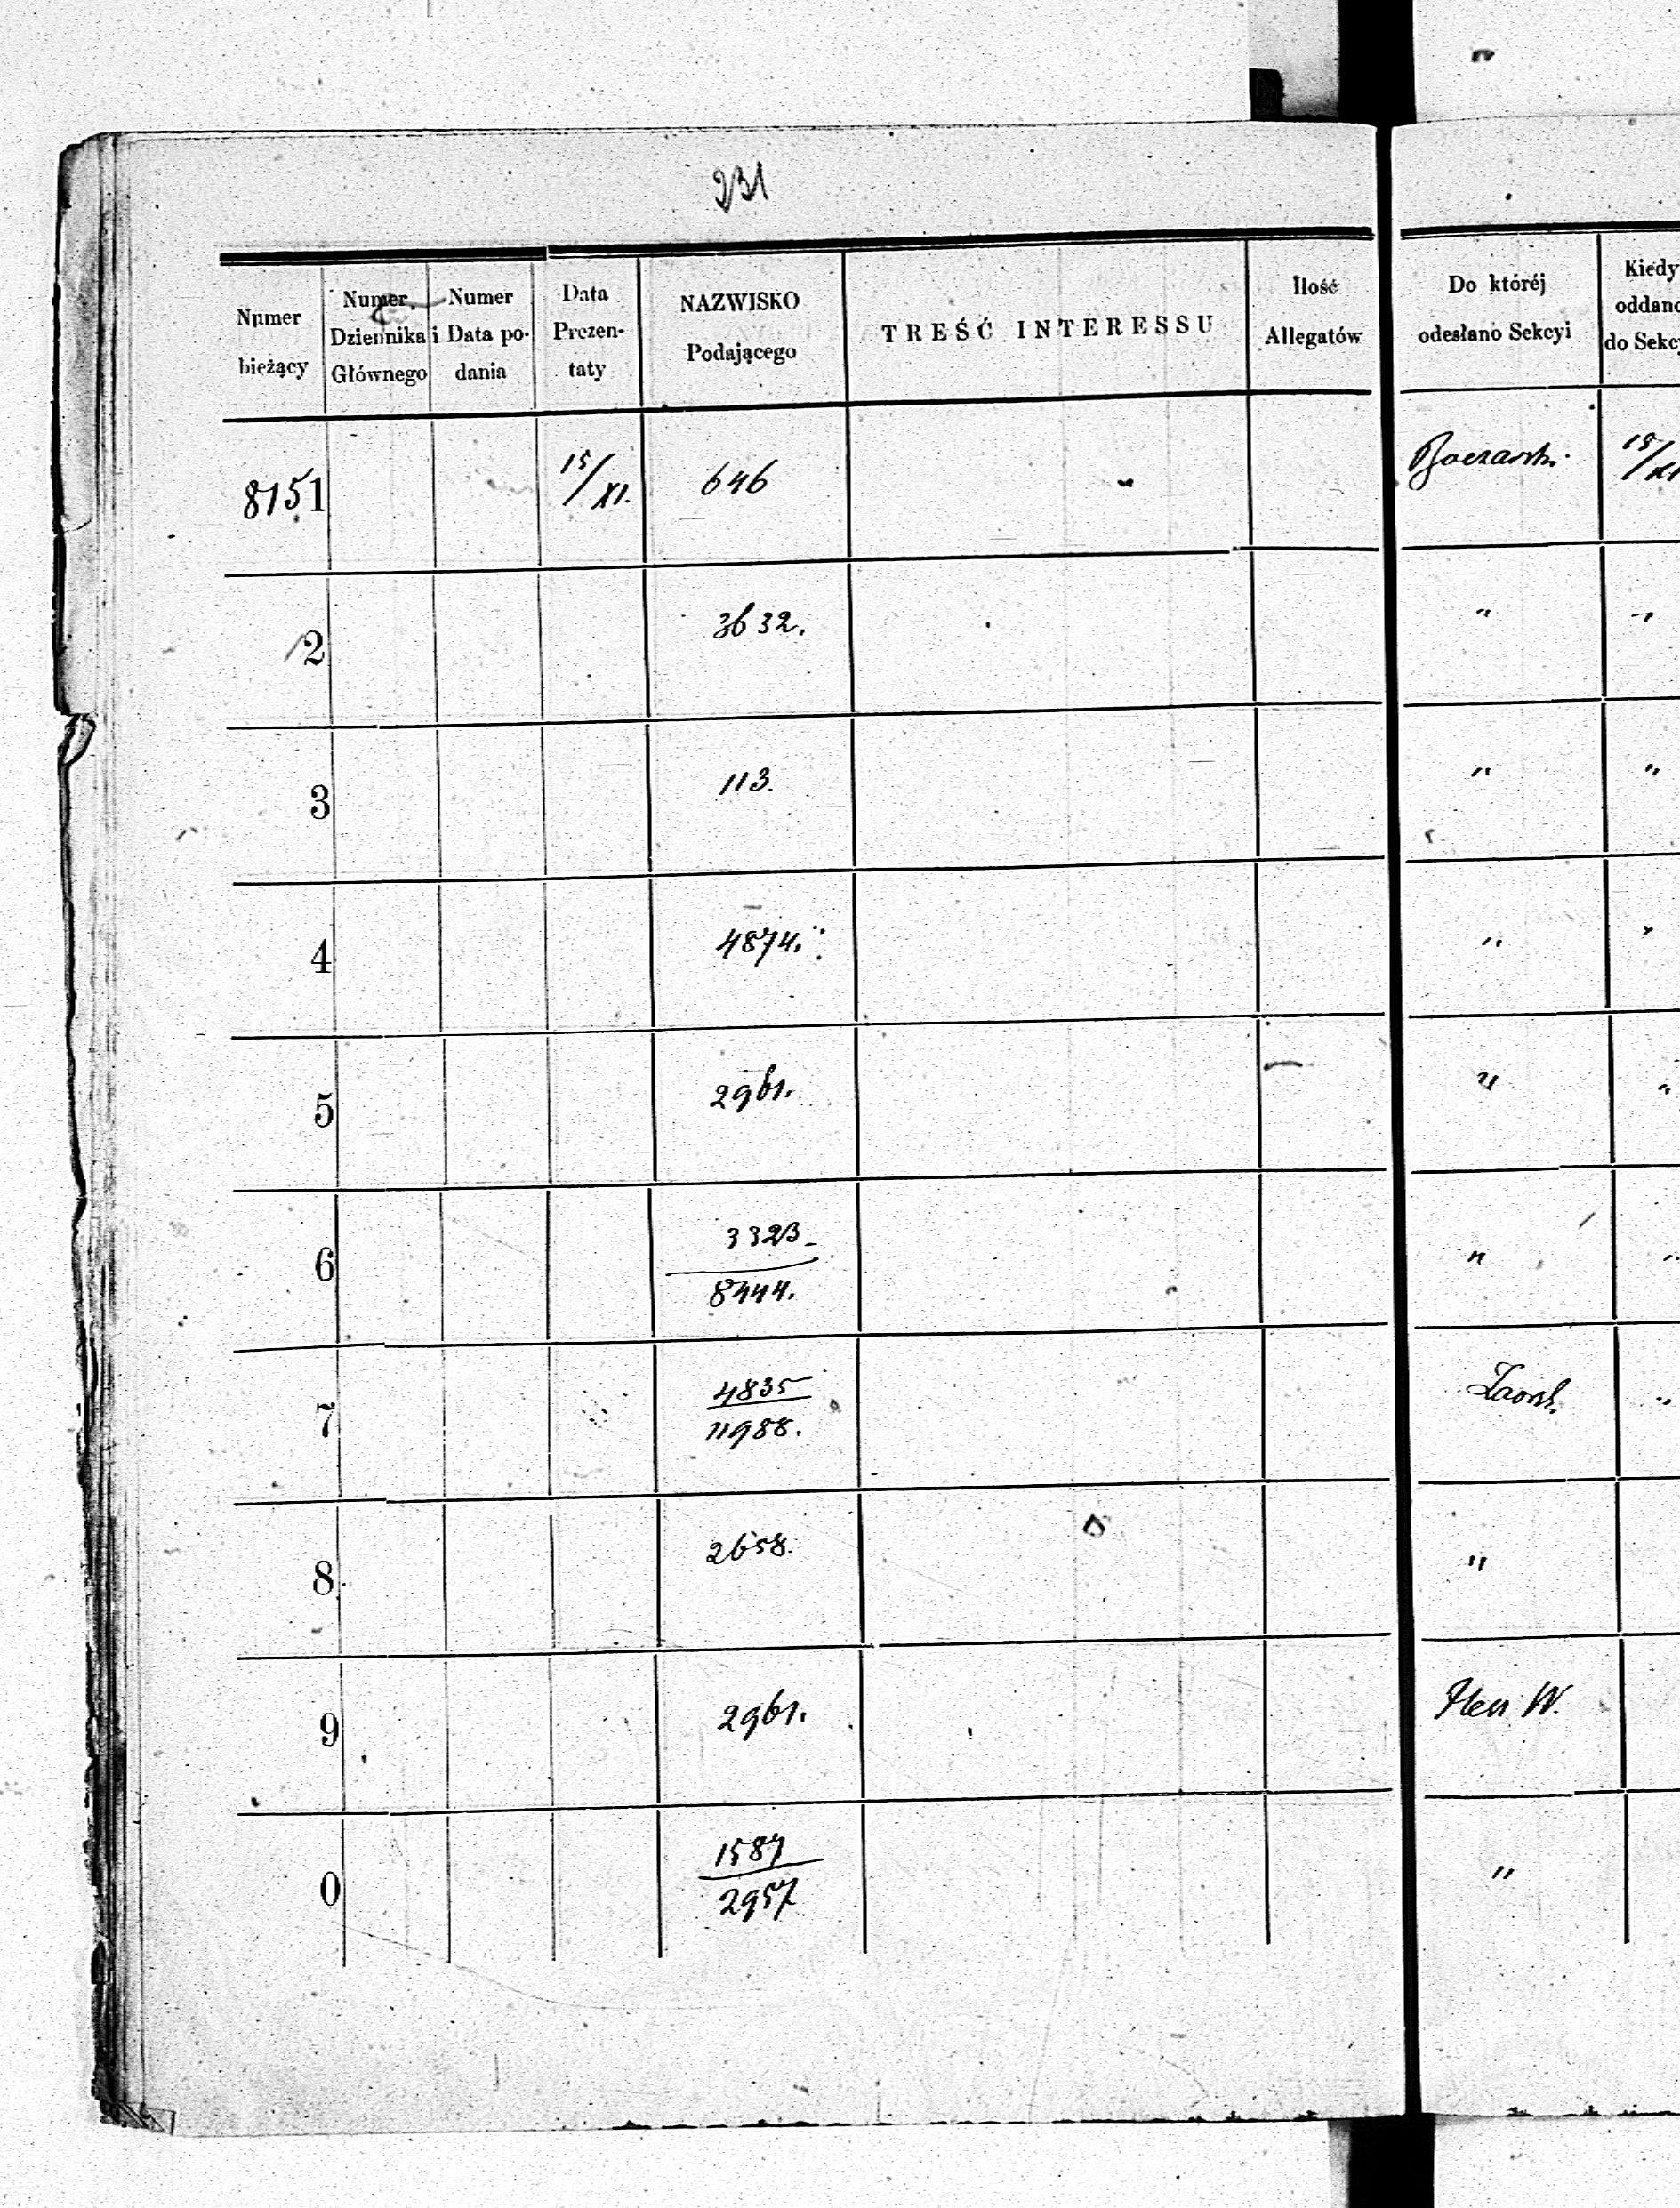 231
Numer bieżący | Numer Dziennika Głównego | Numer i Data podania | Data Prezentaty | NAZWISKO Podającego | TREŚĆ INTERESSU | Ilość Allegatów | Do któréj odesłano Sekcyi | Kiedy oddano do Sekc
8151 | 15/XI. | 646 | 15/XI
2 | 3632. | " | "
3 | 113. | " | "
4 | 4874. | " | "
5 | 2961. | " | "
6 | 3323 | " | "
8444.
7 | 4835 | "
11988.
8 | 2658. | "
9 | 2961.
0 | 1587 | "
2957